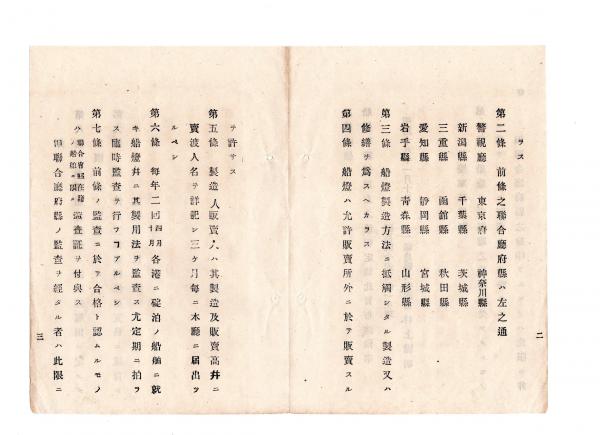 ラス
第二條　前條之聯合廳府縣ハ左之通
警視廳　東京府　神奈川縣
新潟縣　千葉縣　茨城縣
三重縣　函館縣　秋田縣
愛知縣　靜岡縣　宮城縣
岩手縣　青森縣　山形縣
第三條　船燈製造方法ニ抵觸シタル製造又ハ
修繕ヲ爲スヘカラス
第四條　船燈ハ允許販賣所外ニ於テ販賣スル
二
ヲ許サス
第五條　製造人販賣人ハ其製造及販賣高幷ニ
賣渡人名ヲ詳記シ三ケ月每ニ本廳ニ屆出ツ
ルベシ
第六條　每年二回四月十月各港ニ碇泊ノ船舶ニ就
キ船燈幷ニ其製用法ヲ監査ス尤定期ニ拍ラ
ス臨時監査ヲ行フヿアルベシ
第七條　前條ノ監査ニ於テ合格ト認ムルモノ
ハ監査證ヲ付與ス
聯合廳府縣ノ監査ヲ經タル者ハ此限ニ
三